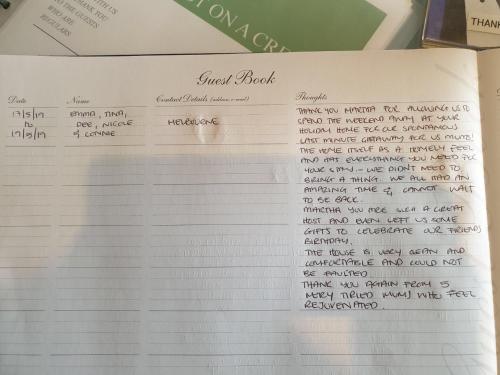 THANK YOU
TO THE GUESTS
WHO ARE
REGULARS
T ON A CRE
THANK
Guest Book
Date Name Contact Details (address, e-mail) Thoughts
17/5/19 EMMA, TINA, MELBOURNE
TO DEE, NICOLE
19/5/19 & CONNIE
THANK YOU MARTHA FOR ALLOWING US TO
SPEND THE WEEKEND AWAY AT YOUR
HOLIDAY HOME FOR OUR SPONTANEOUS
LAST MINUTE GETAWAY FOR US MUMS!
THE HOME ITSELF AS A HOMELY FEEL
AND HAS EVERYTHING YOU NEED FOR
YOUR STAY - WE DIDN'T NEED TO
BRING A THING. WE ALL HAD AN
AMAZING TIME & CANNOT WAIT
TO BE BACK.
MARTHA YOU ARE SUCH A GREAT
HOST AND EVEN LEFT US SOME
GIFTS TO CELEBRATE OUR FRIENDS
BIRTHDAY.
THE HOUSE IS VERY CLEAN AND
COMFORTABLE AND COULD NOT
BE FAULTED
THANK YOU AGAIN FROM 5
VERY TIRED MUMS WHO FEEL
REJUVENATED.